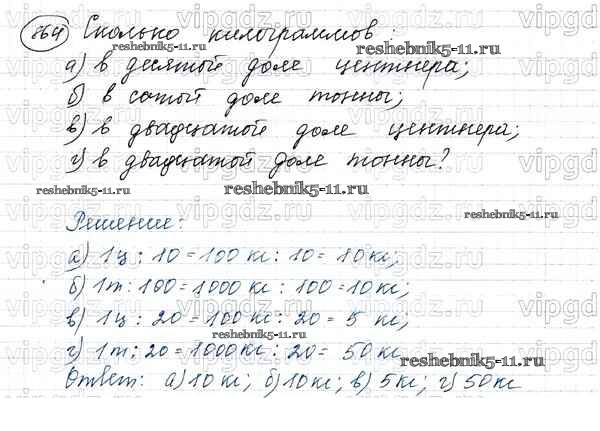 864 Сколько килограммов:
а) в десятой доле центнера;
б) в сотой доле тонны;
в) в двадцатой доле центнера;
г) в двадцатой доле тонны?
Решение:
а) 1ц : 10 = 100 кг : 10 = 10кг;
б) 1т : 100 = 1000 кг : 100 = 10кг;
в) 1ц : 20 = 100кг : 20 = 5 кг;
г) 1т : 20 = 1000кг : 20 = 50 кг
Ответ: а) 10кг; б) 10кг; в) 5кг; г) 50кг